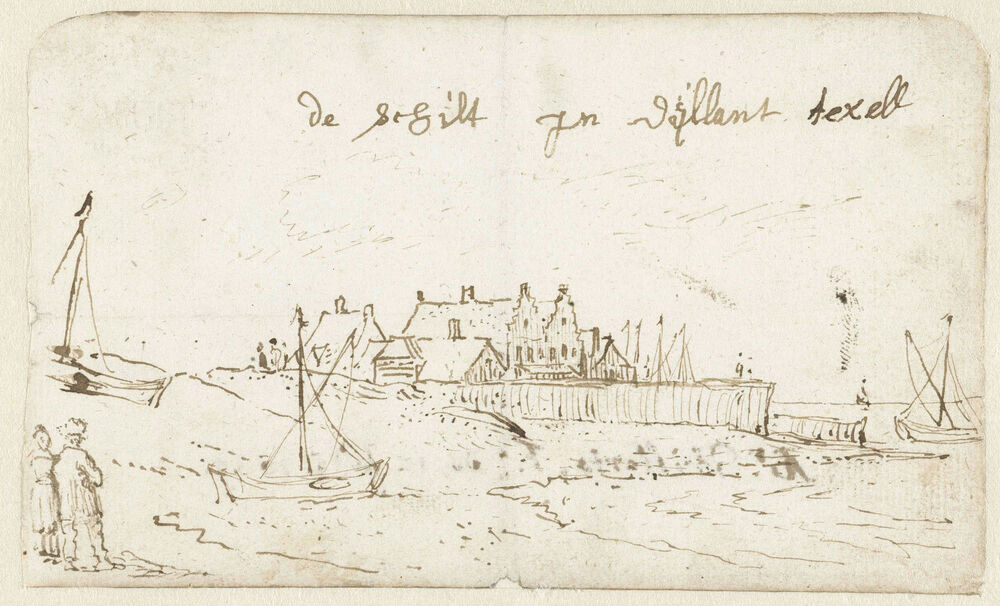 de schilt jn dÿllant texell